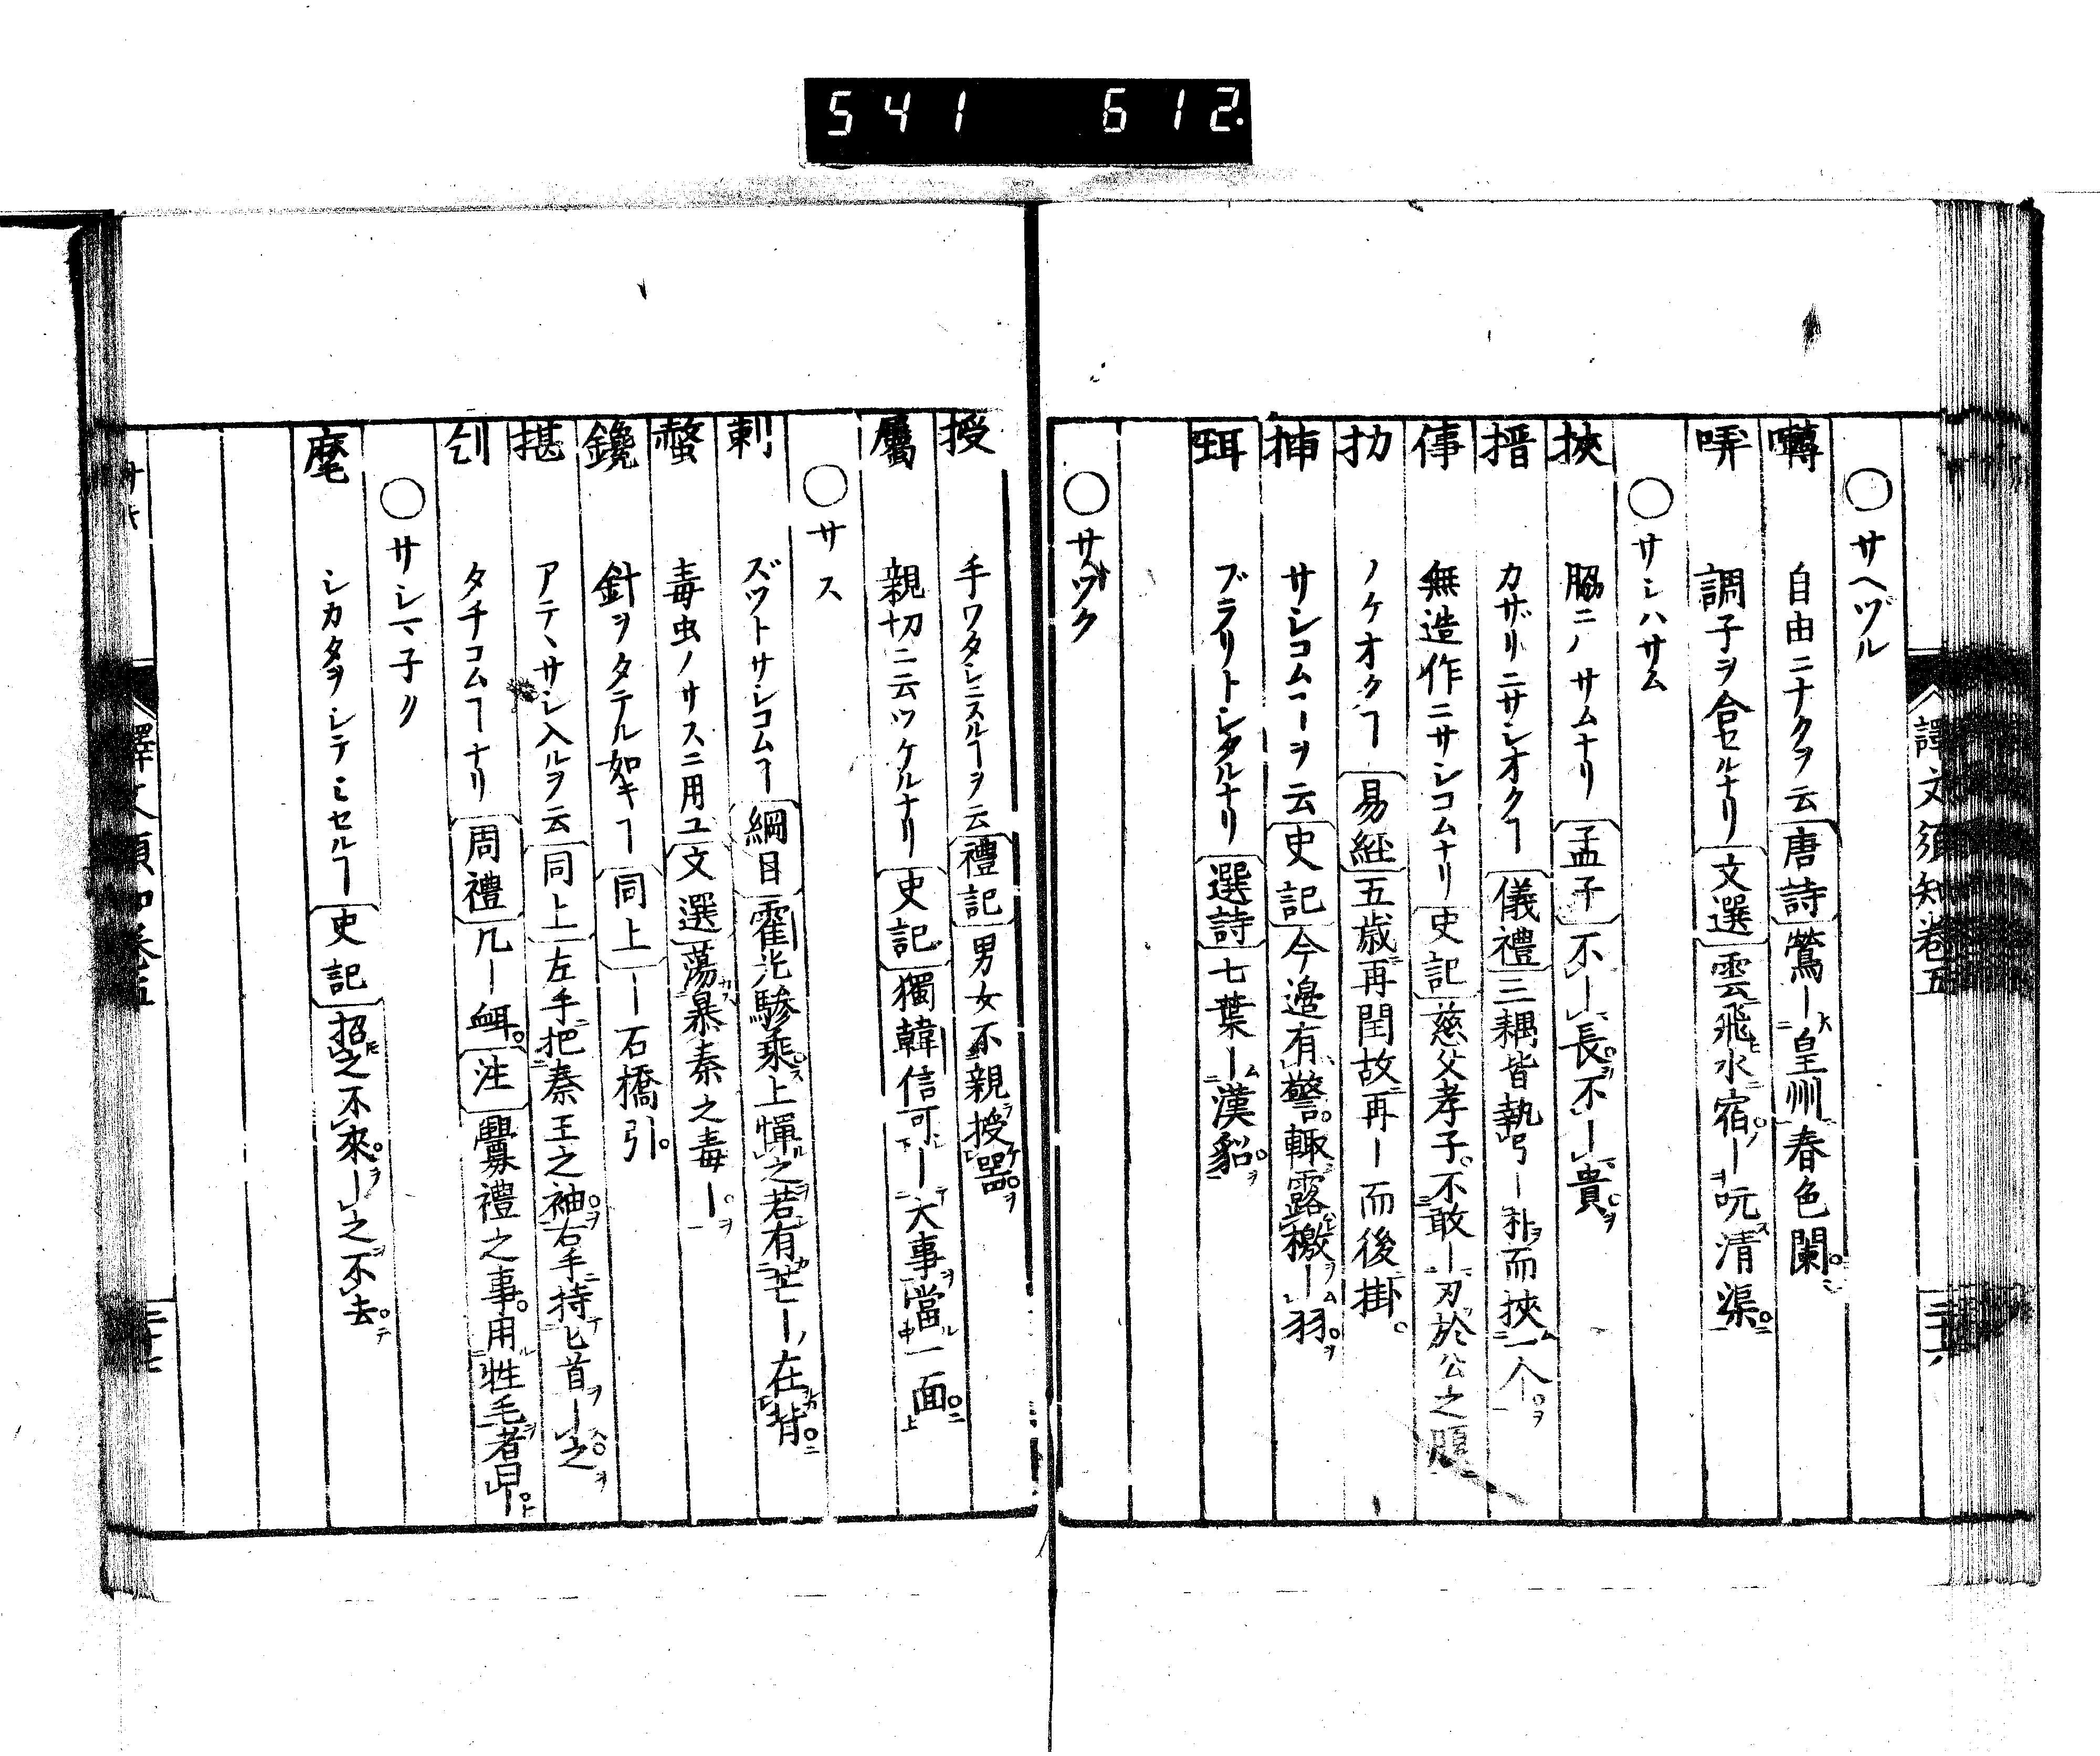 541 612.
譯文須知巻五
二十六
○サヘヅル
囀 自由ニナクヲ云 唐詩 鶯ー皇州春色闌
哢 調子ヲ合セルナリ 文選 雲飛水宿ー吭清渠
○サシハサム
挾 脇ニハサムナリ 孟子 不ー長不ー貴
搢 カザリニサシオクヿ 儀禮 三耦皆執弓ー扑而挾一个
倳 無造作ニサシコムナリ 史記 慈父孝子不敢ー刃於公之腹
扐 ノケオクヿ 易経 五歳再閏故再ー而後掛
挿 サシコムヿヲ云 史記 今邉有警輙露檄ー羽
珥 ブラリトシタルナリ 選詩 七葉ー漢貂
○サヅク
授 手ワタシニスルヿヲ云 禮記 男女不親授器
屬 親切ニ云ツケルナリ 史記 獨韓信可ー大事當一面
○サス
刺 ズツトサシコムヿ 綱目 霍光驂乘上憚之若有芒ー在背
螫 毒虫ノサスニ用ユ 文選 蕩暴秦之毒ー
鑱 針ヲタテル如キヿ 同上 ー石橋引
揕 アテヽサシ入ルヲ云 同上 左手把秦王之袖右手持匕首ー之
刉 タチコムヿナリ 周禮 凢ー衈 注 釁禮之事用牲毛者曰ー
○サシマ子ク
麾 シカタヲシテミセルヿ 史記 招之不來ー之不去
二十七